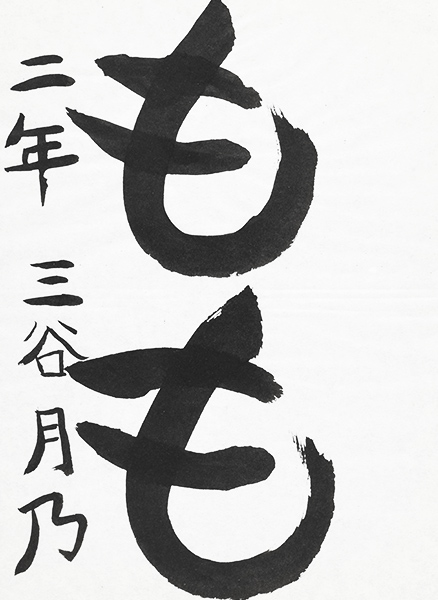 もも
二年 三谷月乃